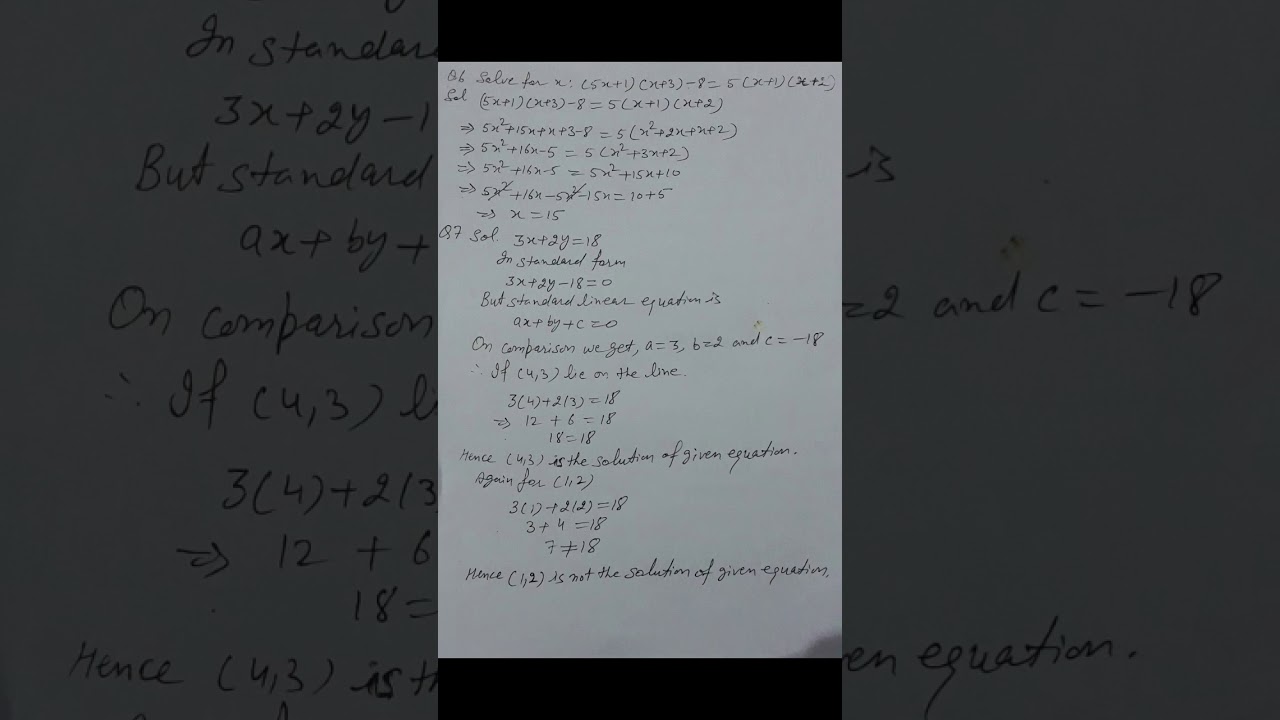 Q6 Solve for x: (5x+1)(x+3)-8=5(x+1)(x+2)
Sol (5x+1)(x+3)-8=5(x+1)(x+2)
⇒ 5x²+15x+x+3-8=5(x²+2x+x+2)
⇒ 5x²+16x-5=5(x²+3x+2)
⇒ 5x²+16x-5=5x²+15x+10
⇒ 5x²+16x-5x²-15x=10+5
⇒ x=15
Q7 Sol. 3x+2y=18
In standard form
3x+2y-18=0
But standard linear equation is
ax+by+c=0
On comparison we get, a=3, b=2 and c=-18
∴ If (4,3) lie on the line.
3(4)+2(3)=18
⇒ 12+6=18
18=18
Hence (4,3) is the solution of given equation.
Again for (1,2)
3(1)+2(2)=18
3+4=18
7≠18
Hence (1,2) is not the solution of given equation.